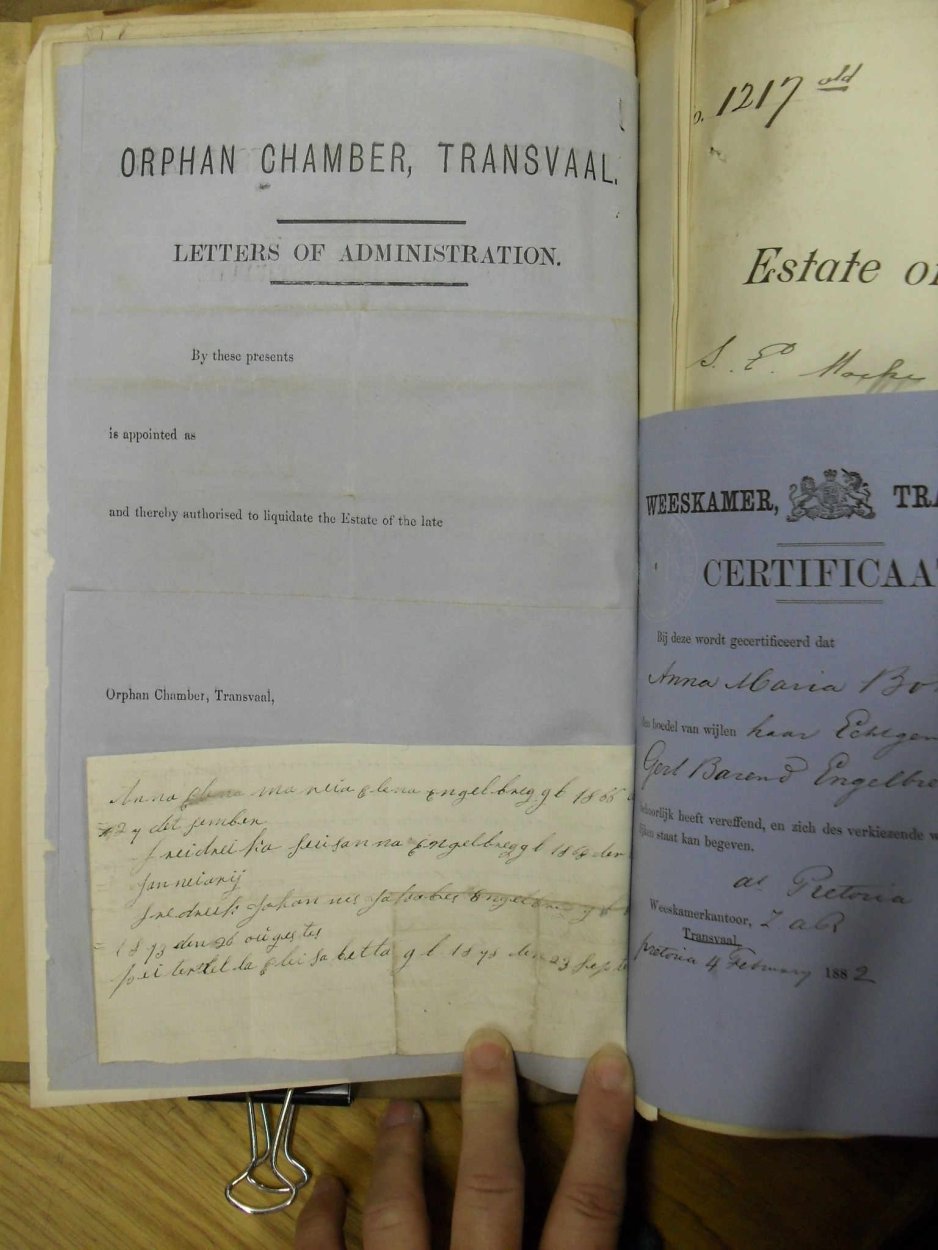 ORPHAN CHAMBER, TRANSVAAL.
LETTERS OF ADMINISTRATION.
By these presents
is appointed as
and thereby authorised to liquidate the Estate of the late
Orphan Chamber, Transvaal,
Anna elena mareia elena Engelbreggt 1866
y det sember
freidreika seisanna Engelbreggt den
janneiarij
fredreik Johannes Jakobes Engelbreggt
1873 den 26 ougestes
peiternella eleisabetta g b den 23 Septe
1217 old
Estate o
S. E.
WEESKAMER, TRA
CERTIFICAA
Bij deze wordt gecertificeerd dat
Anna Maria Bo
den boedel van wijlen haar Echtgen
Gert Barend Engelbre
behoorlijk heeft vereffend, en zich des verkiezende
staat kan begeven.
at Pretoria
Weeskamerkantoor, Z a R
Transvaal,
Pretoria 4 February 1882